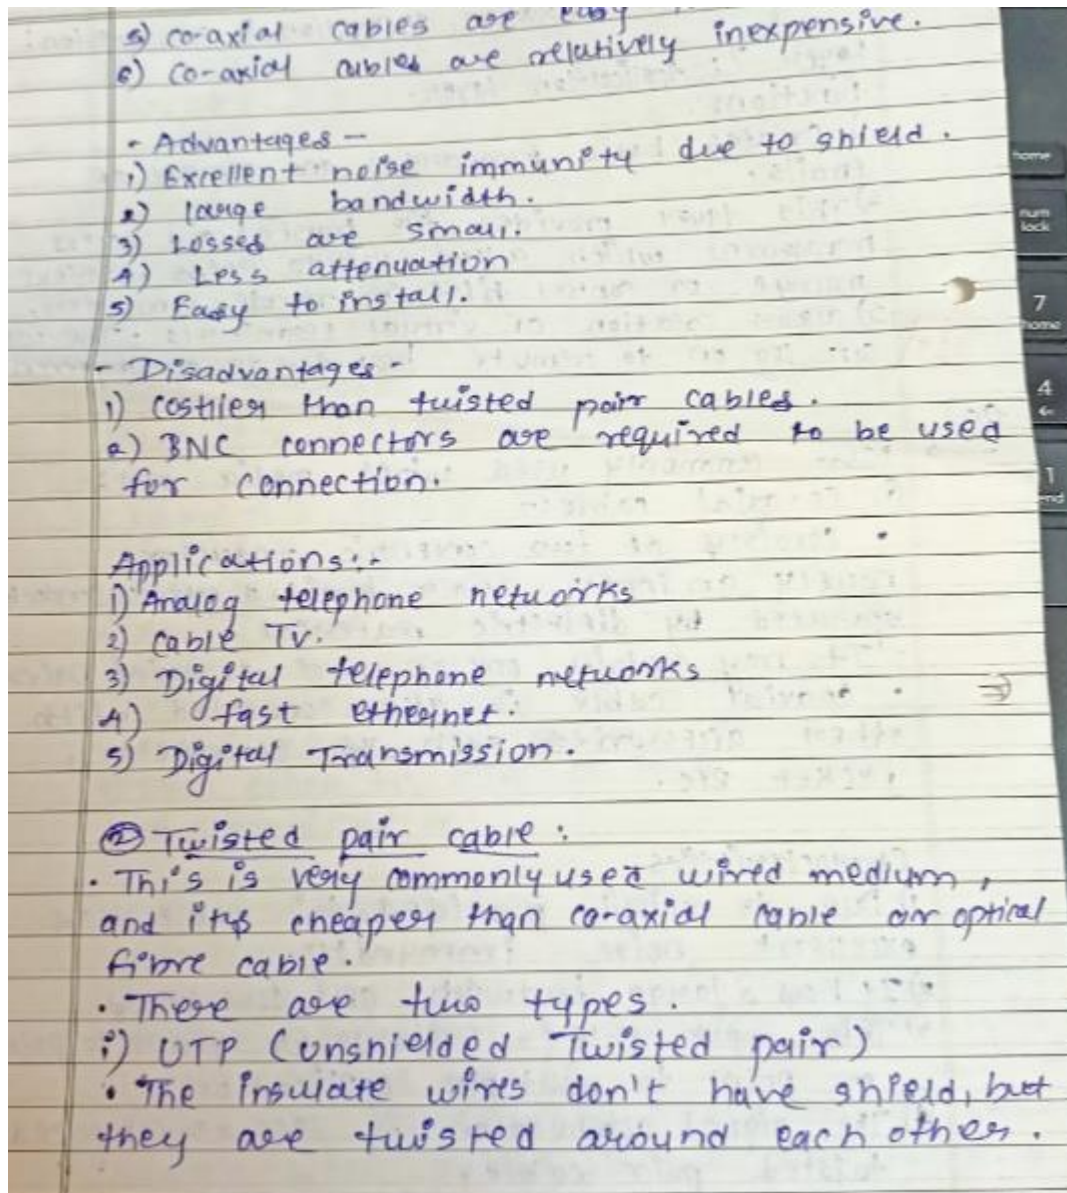 5) co-axial cables are easy
6) co-axial cables are relatively inexpensive.
- Advantages -
1) Excellent noise immunity due to shield.
2) large bandwidth.
3) Losses are small.
4) Less attenuation
5) Easy to install.
- Disadvantages -
1) costlier than twisted pair cables.
2) BNC connectors are required to be used
for connection.
Applications:-
1) Analog telephone networks
2) cable TV.
3) Digital telephone networks
4) fast ethernet.
5) Digital Transmission.
② Twisted pair cable :
• This is very commonly used wired medium,
and its cheaper than co-axial cable or optical
fibre cable.
• There are two types.
i) UTP (unshielded Twisted pair)
• The insulate wires don't have shield, but
they are twisted around each other.
home
num
lock
7
home
4
←
1
end